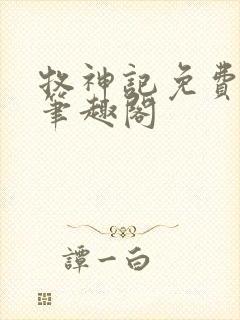 牧神記免費
筆趣閣
譚一白